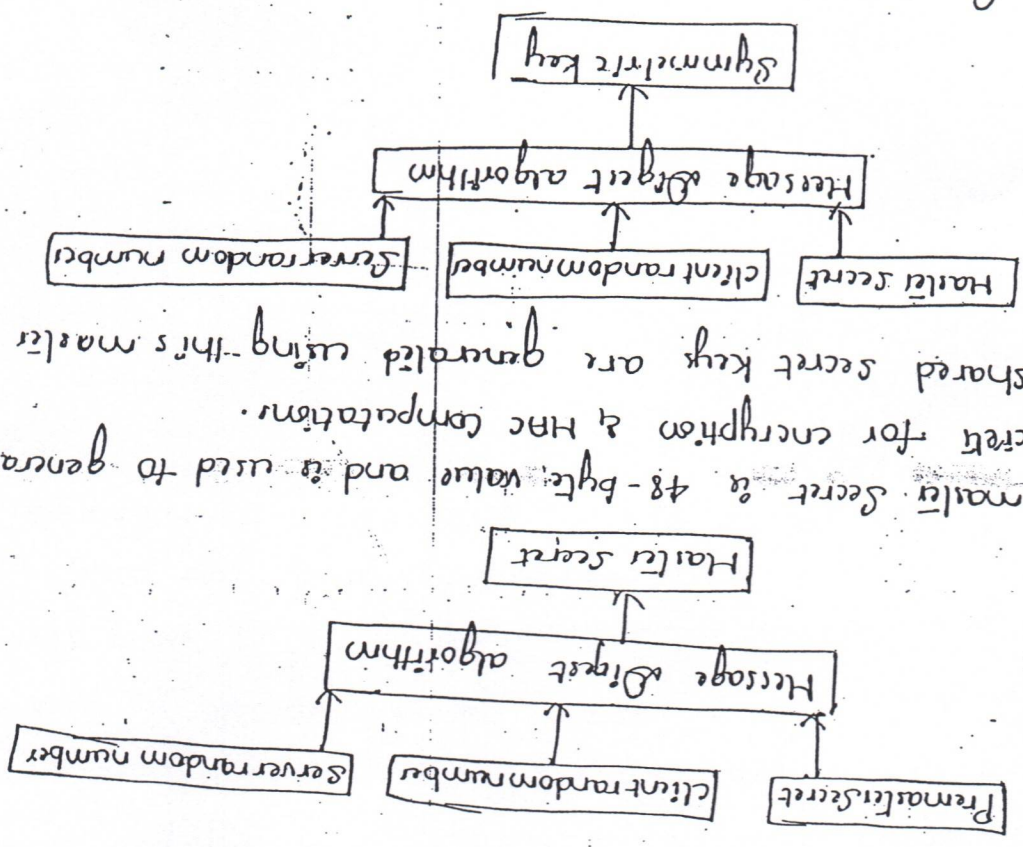 Premaster Secret
client random number
Server random number
Message Digest algorithm
Master Secret
master Secret is 48-byte value and is used to genera
crets for encryption & MAC Computations.
shared secret keys are generated using this master
Master secret
client random number
Server random number
Message Digest algorithm
Symmetric key